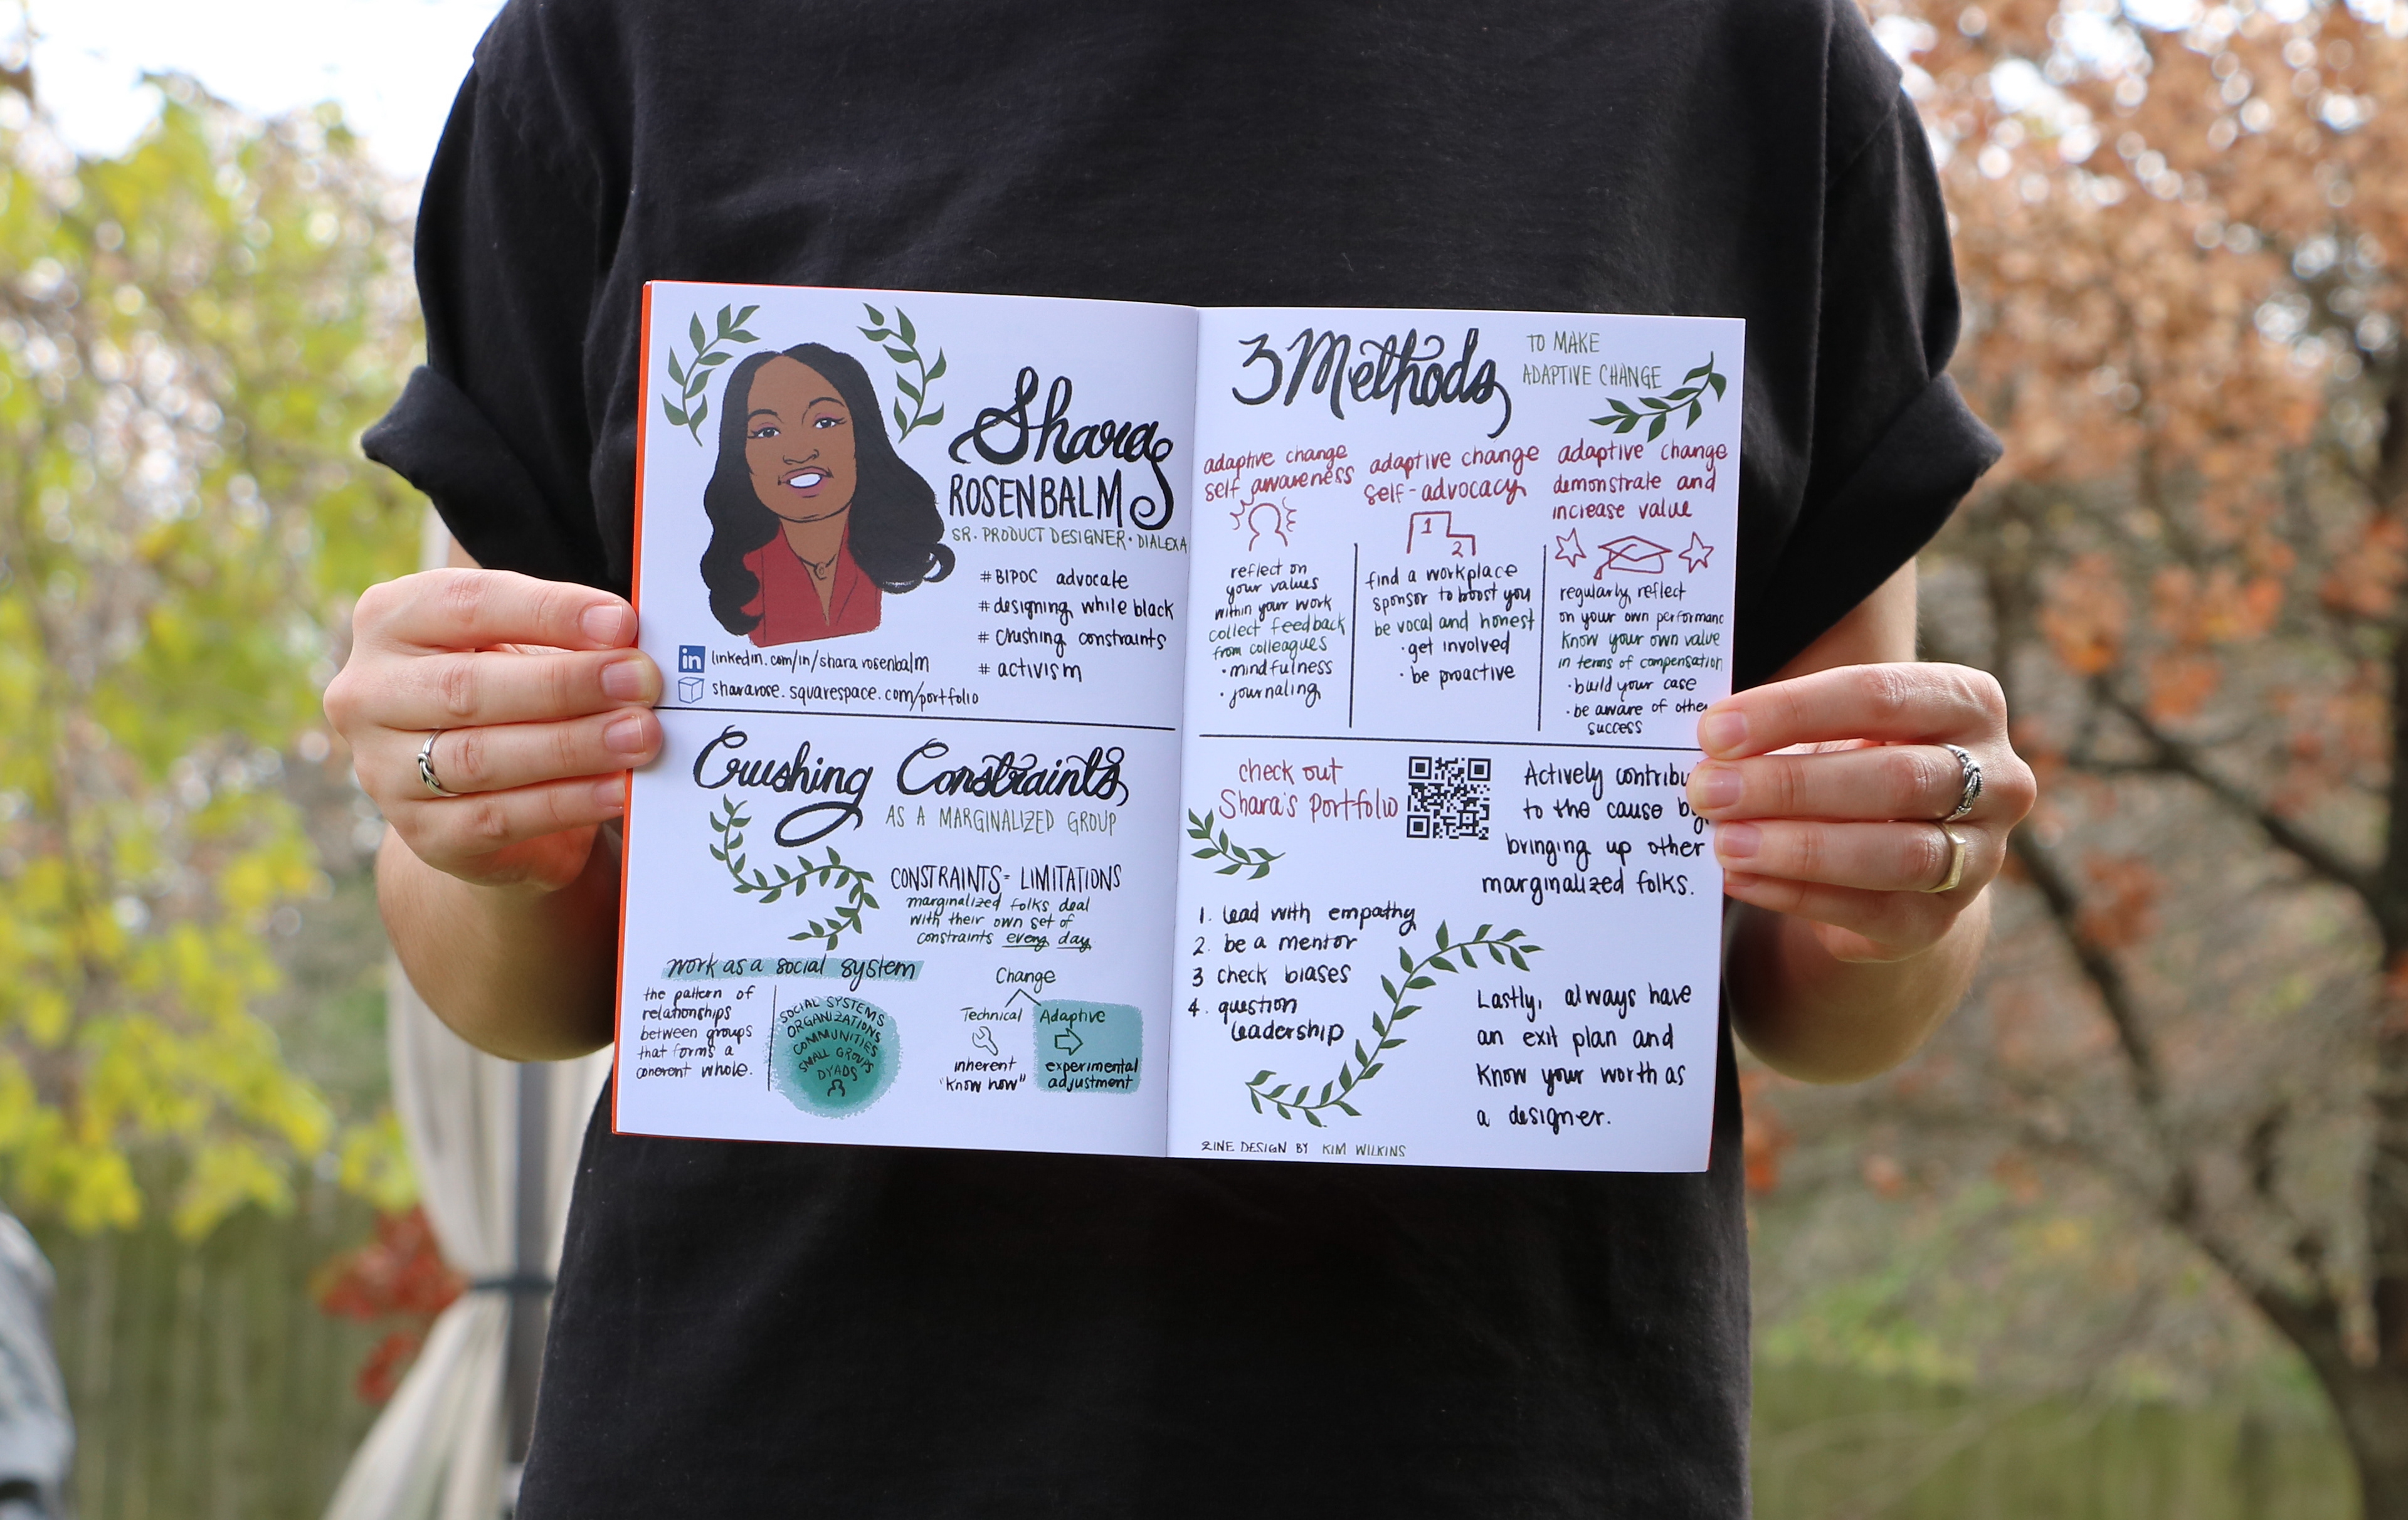 Shara
ROSENBALM
SR. PRODUCT DESIGNER · DIALEXA
#BIPOC advocate
#designing while black
# Crushing constraints
# activism
in linkedin.com/in/shararosenbalm
shararose.squarespace.com/portfolio
Crushing Constraints
AS A MARGINALIZED GROUP
CONSTRAINTS = LIMITATIONS
marginalized folks deal
with their own set of
constraints every day
work as a social system
the pattern of
relationships
between groups
that forms a
coherent whole.
SOCIAL SYSTEMS
ORGANIZATIONS
COMMUNITIES
SMALL GROUPS
DYADS
Change
Technical
inherent
"know how"
Adaptive
experimental
adjustment
3 Methods
TO MAKE
ADAPTIVE CHANGE
adaptive change
self awareness
reflect on
your values
within your work
collect feedback
from colleagues
· mindfulness
· journaling
adaptive change
self-advocacy
1
2
find a workplace
sponsor to boost you
be vocal and honest
· get involved
· be proactive
adaptive change
demonstrate and
increase value
regularly reflect
on your own performanc
know your own value
in terms of compensation
· build your case
· be aware of othe
success
check out
Shara's portfolio
Actively contribu
to the cause by
bringing up other
marginalized folks.
1. lead with empathy
2. be a mentor
3 check biases
4. question
leadership
Lastly, always have
an exit plan and
know your worth as
a designer.
ZINE DESIGN BY KIM WILKINS